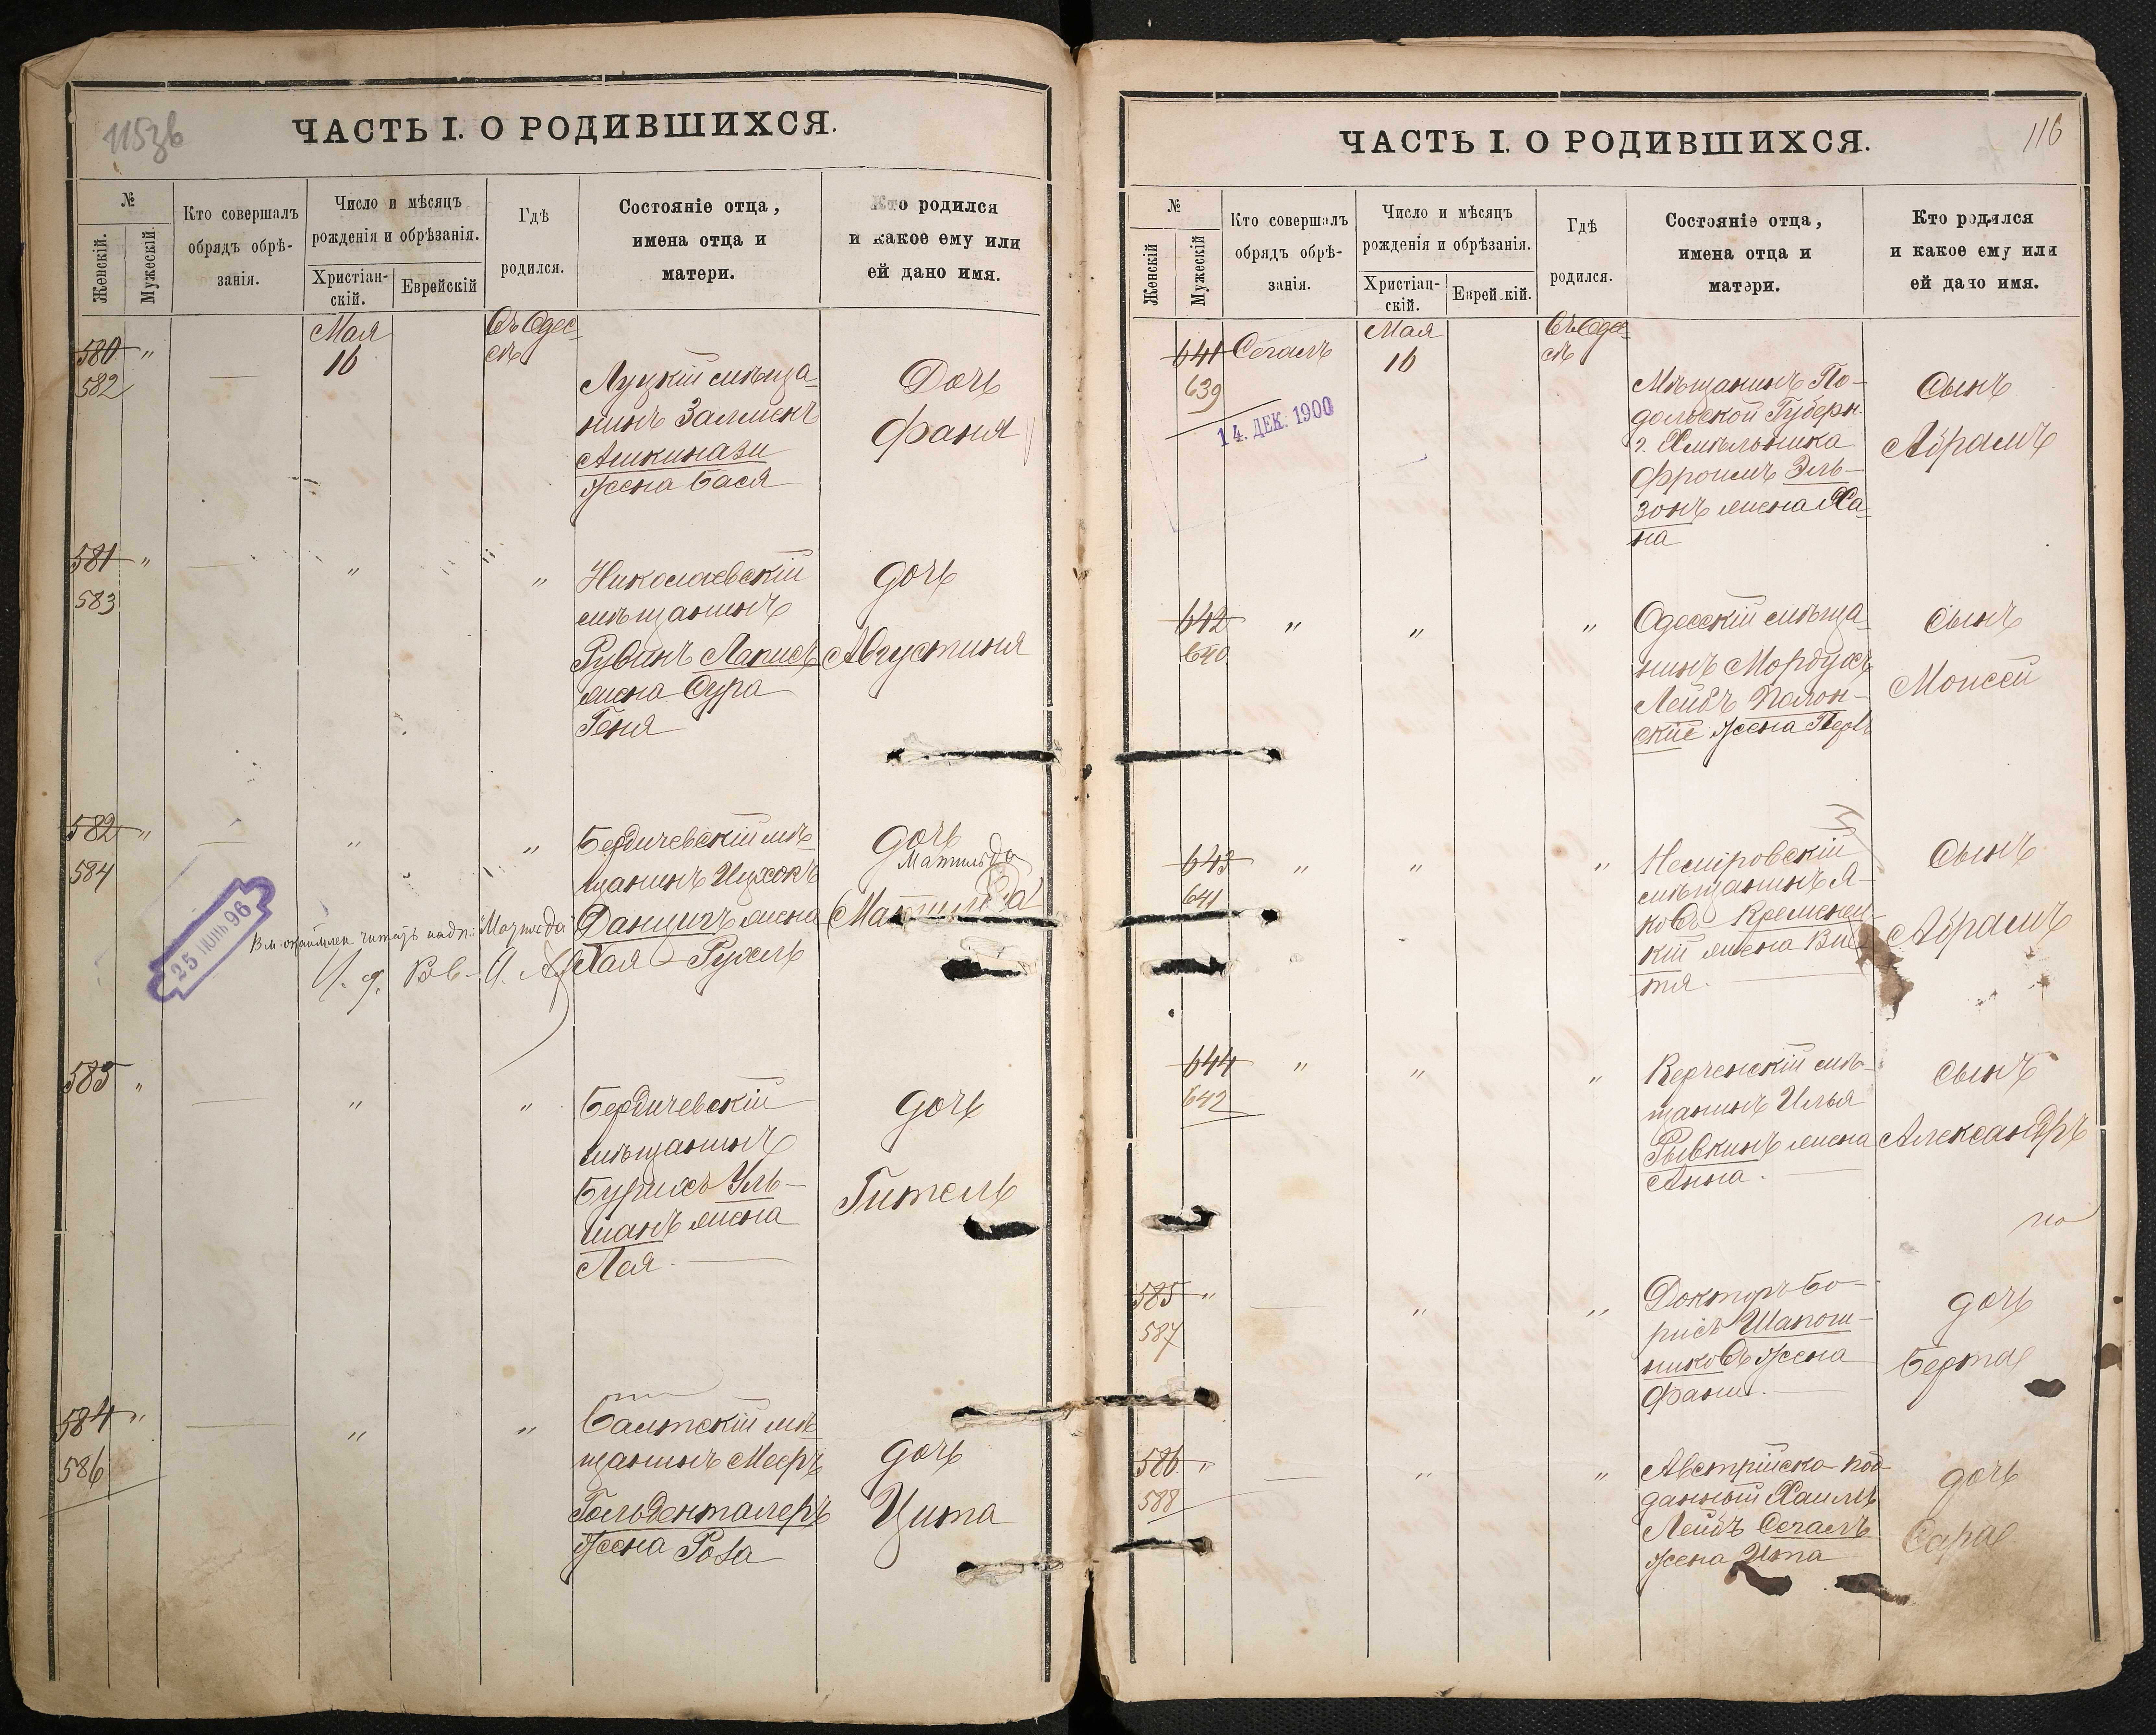 115зв
ЧАСТЬ I. О РОДИВШИХСЯ.
№
Женскій.
Мужескій.
Кто совершалъ
обрядъ обрѣ-
занія.
Число и мѣсяцъ
рожденія и обрѣзанія.
Христіан-
скій.
Еврейскій
Гдѣ
родился.
Состояніе отца,
имена отца и
матери.
Кто родился
и какое ему или
ей дано имя.
580 "
582
—
Мая
16
Въ Одес-
сѣ
Луцкій мѣща-
нинъ Залменъ
Ашкинази
жена Бася
Дочь
Фаня
581 "
583
—
"
"
Николаевскій
мѣщанинъ
Рувинъ Лаписъ
жена Сура
Геня
дочь
Августиня
582 "
584
—
"
"
Бердичевскій мѣ-
щанинъ Ицхокъ
Данцигъ жена
Хая-Рухель
дочь
Матильда
Матильда
25 ІЮНЬ 96
читать надп: "Матильда"
585 "
—
"
"
Бердичевскій
мѣщанинъ
Бурихъ Уль-
манъ жена
Лея.
дочь
Гитель
584 "
586
—
"
"
Балтскій мѣ-
щанинъ Мееръ
Гольденталеръ
жена Роза
дочь
Цита
116
ЧАСТЬ I. О РОДИВШИХСЯ.
№
Женскій
Мужескій
Кто совершалъ
обрядъ обрѣ-
занія.
Число и мѣсяцъ
рожденія и обрѣзанія.
Христіан-
скій.
Еврейскій.
Гдѣ
родился.
Состояніе отца,
имена отца и
матери.
Кто родился
и какое ему или
ей дано имя.
641
639
14. ДЕК. 1900
Сегалъ
Мая
16
Въ Одес-
сѣ
Мѣщанинъ По-
дольской Губерн.
г. Хмѣльника
Фроимъ Эль-
зонъ жена Ха-
на
Сынъ
Абрамъ
642
640
"
"
"
Одесскій мѣща-
нинъ Мордухъ
Лейбъ Полон-
скіе жена Перль
Сынъ
Моисей
643
641
"
"
"
Немировскій
мѣщанинъ Я-
ковъ Кременец-
кій жена Ви-
тя.
Сынъ
Абрамъ
644
642
"
"
"
Керченскій мѣ-
щанинъ Илья
Рывкинъ жена
Анна.
сынъ
Александръ
585 "
587
—
"
"
Докторъ Бо-
рисъ Шапош-
никовъ жена
Фани.
дочь
Берта
586. "
588
—
"
"
Австрійско-под-
данный Хаимъ
Лейбъ Сегалъ
жена Ита
дочь
Сара